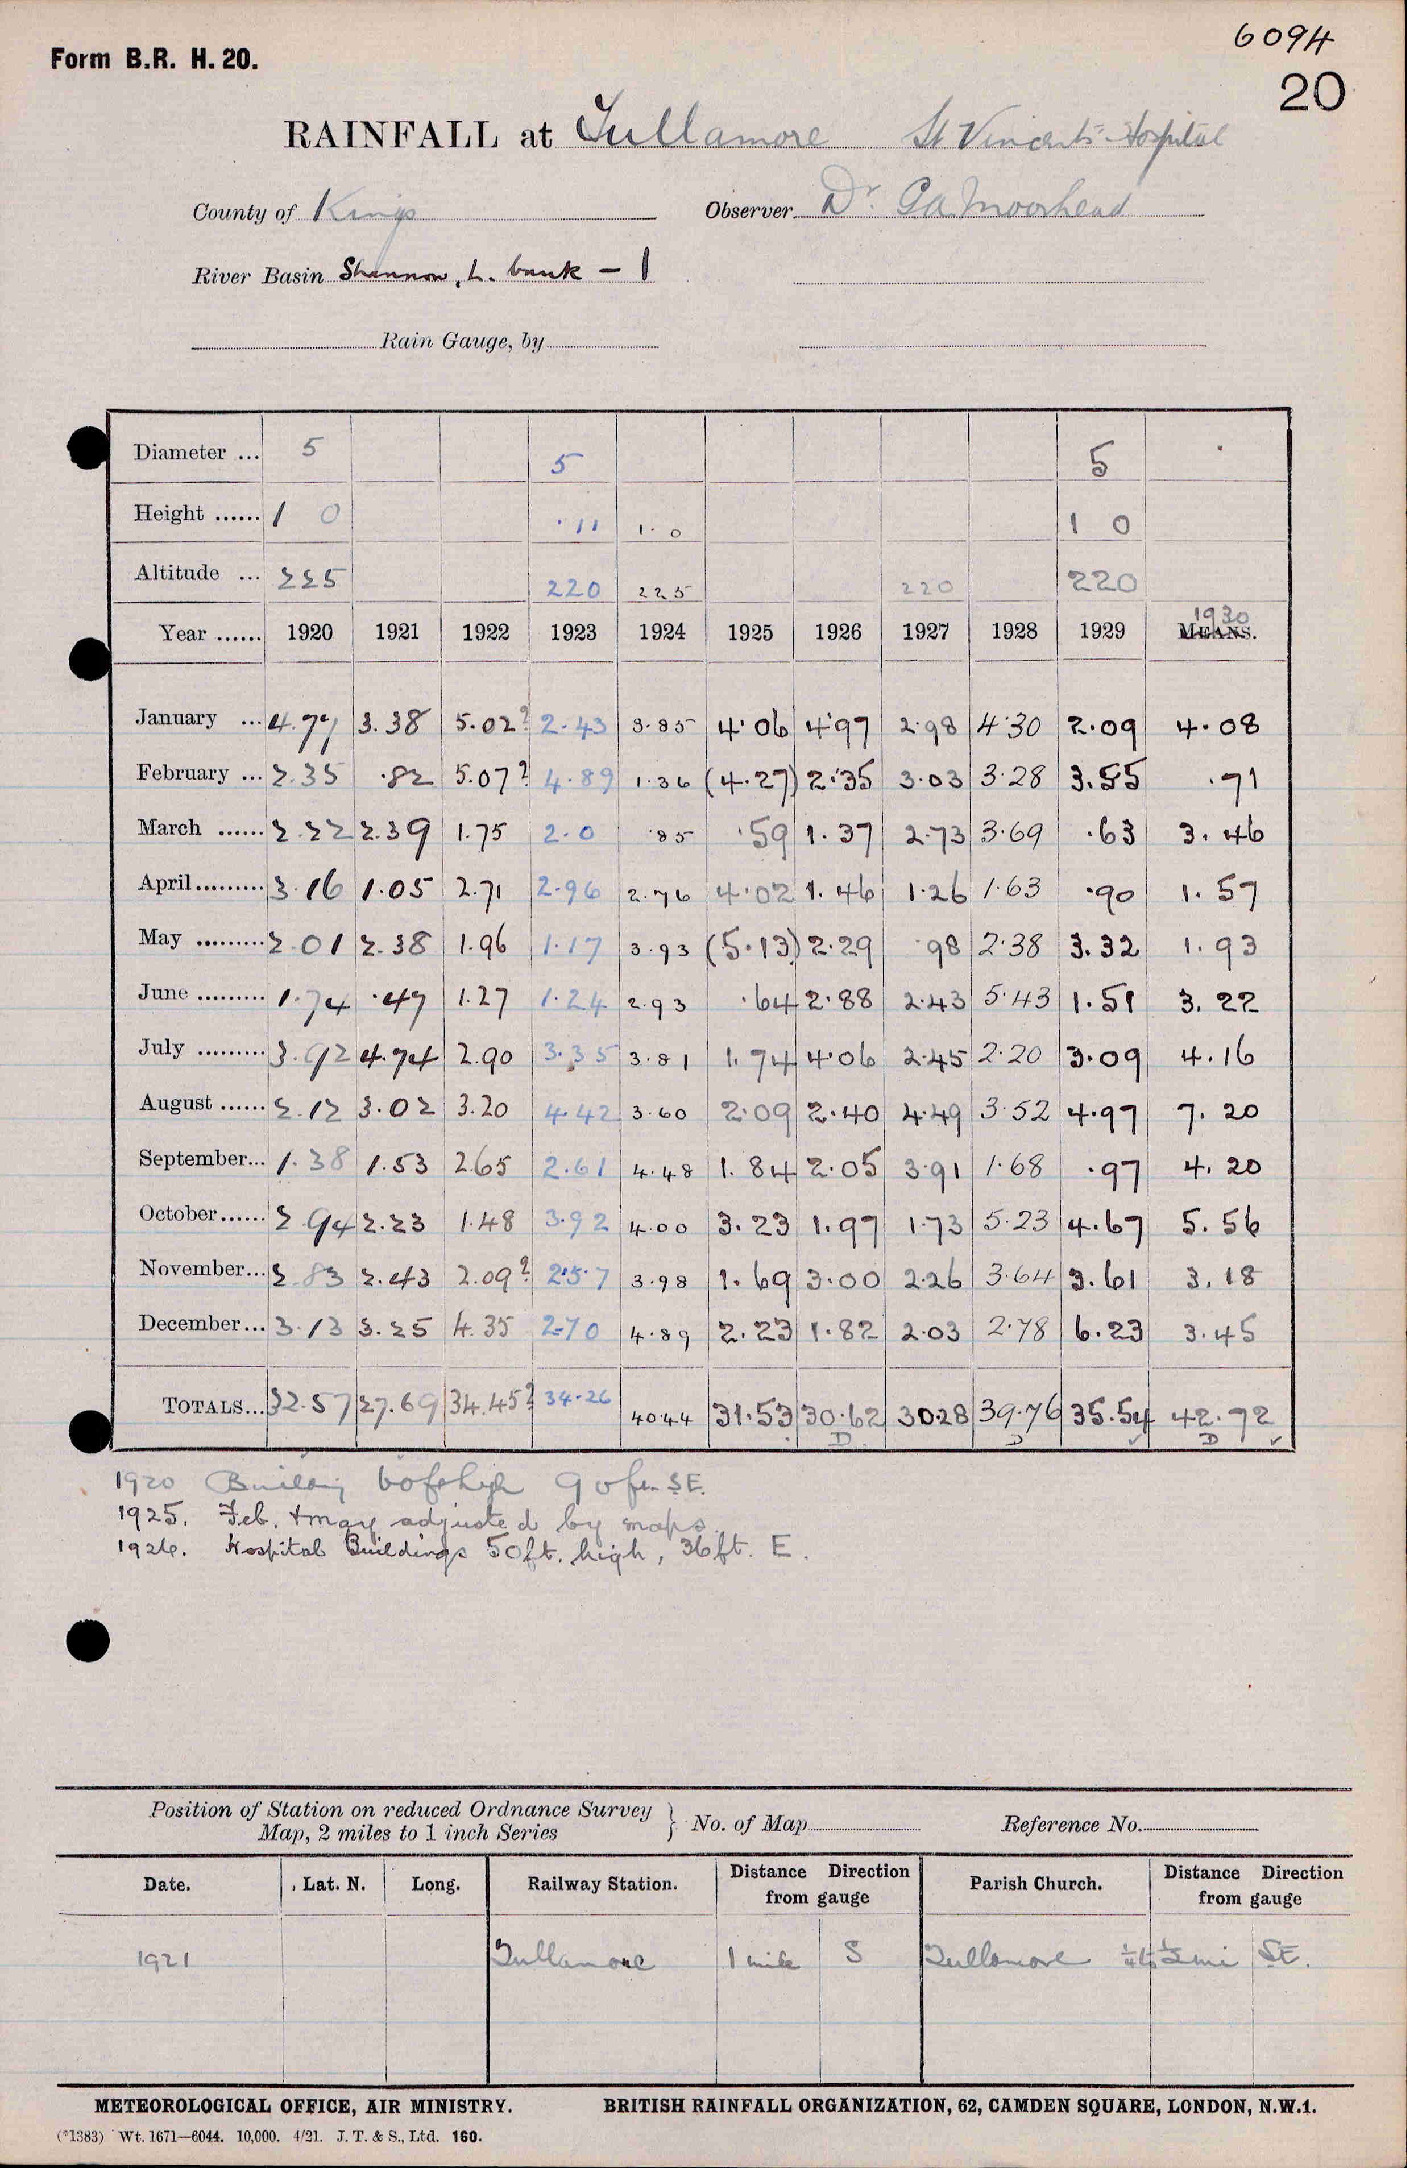 6094
Form B.R. H. 20.
20
RAINFALL at Tullamore St Vincent's Hospital
County of Kings Observer Dr. GA Moorhead
River Basin Shannon, L. bank - 1
Rain Gauge, by
Diameter ... 5 5 5
Height ...... 1 0 .11 1.0 1 0
Altitude ... 225 220 225 220 220
1930
Year ...... 1920 1921 1922 1923 1924 1925 1926 1927 1928 1929 MEANS.
January ... 4.77 3.38 5.02? 2.43 3.85 4.06 4.97 2.98 4.30 2.09 4.08
February ... 2.35 .82 5.07? 4.89 1.36 (4.27) 2.35 3.03 3.28 3.55 .71
March ...... 2.22 2.39 1.75 2.0 .85 .59 1.37 2.73 3.69 .63 3.46
April ......... 3.16 1.05 2.71 2.96 2.76 4.02 1.46 1.26 1.63 .90 1.57
May ......... 2.01 2.38 1.96 1.17 3.93 (5.13) 2.29 98 2.38 3.32 1.93
June ......... 1.74 .47 1.27 1.24 2.93 .64 2.88 2.43 5.43 1.51 3.22
July ......... 3.92 4.74 2.90 3.35 3.81 1.74 4.06 2.45 2.20 3.09 4.16
August ...... 2.12 3.02 3.20 4.42 3.60 2.09 2.40 4.49 3.52 4.97 7.20
September... 1.38 1.53 2.65 2.61 4.48 1.84 2.05 3.91 1.68 .97 4.20
October...... 2.94 2.23 1.48 3.92 4.00 3.23 1.97 1.73 5.23 4.67 5.56
November... 2.83 2.43 2.09? 2.57 3.98 1.69 3.00 2.26 3.64 3.61 3.18
December... 3.13 3.25 4.35 2.70 4.89 2.23 1.82 2.03 2.78 6.23 3.45
TOTALS... 32.57 27.69 34.45? 34.26 40.44 31.53 30.62 30.28 39.76 35.54 42.72
D D ✓ D ✓
1920 Building 60ft high 90ft SE.
1925. Feb. + May adjusted by maps.
1926. Hospital Buildings 50ft. high, 36ft. E.
Position of Station on reduced Ordnance Survey
Map, 2 miles to 1 inch Series } No. of Map Reference No.
Date. Lat. N. Long. Railway Station. Distance Direction from gauge Parish Church. Distance Direction from gauge
1921 Tullamore 1 mile S Tullamore ¼ to ½ mi SE.
METEOROLOGICAL OFFICE, AIR MINISTRY. BRITISH RAINFALL ORGANIZATION, 62, CAMDEN SQUARE, LONDON, N.W.1.
(*1383) Wt. 1671—6044. 10,000. 4/21. J. T. & S., Ltd. 160.